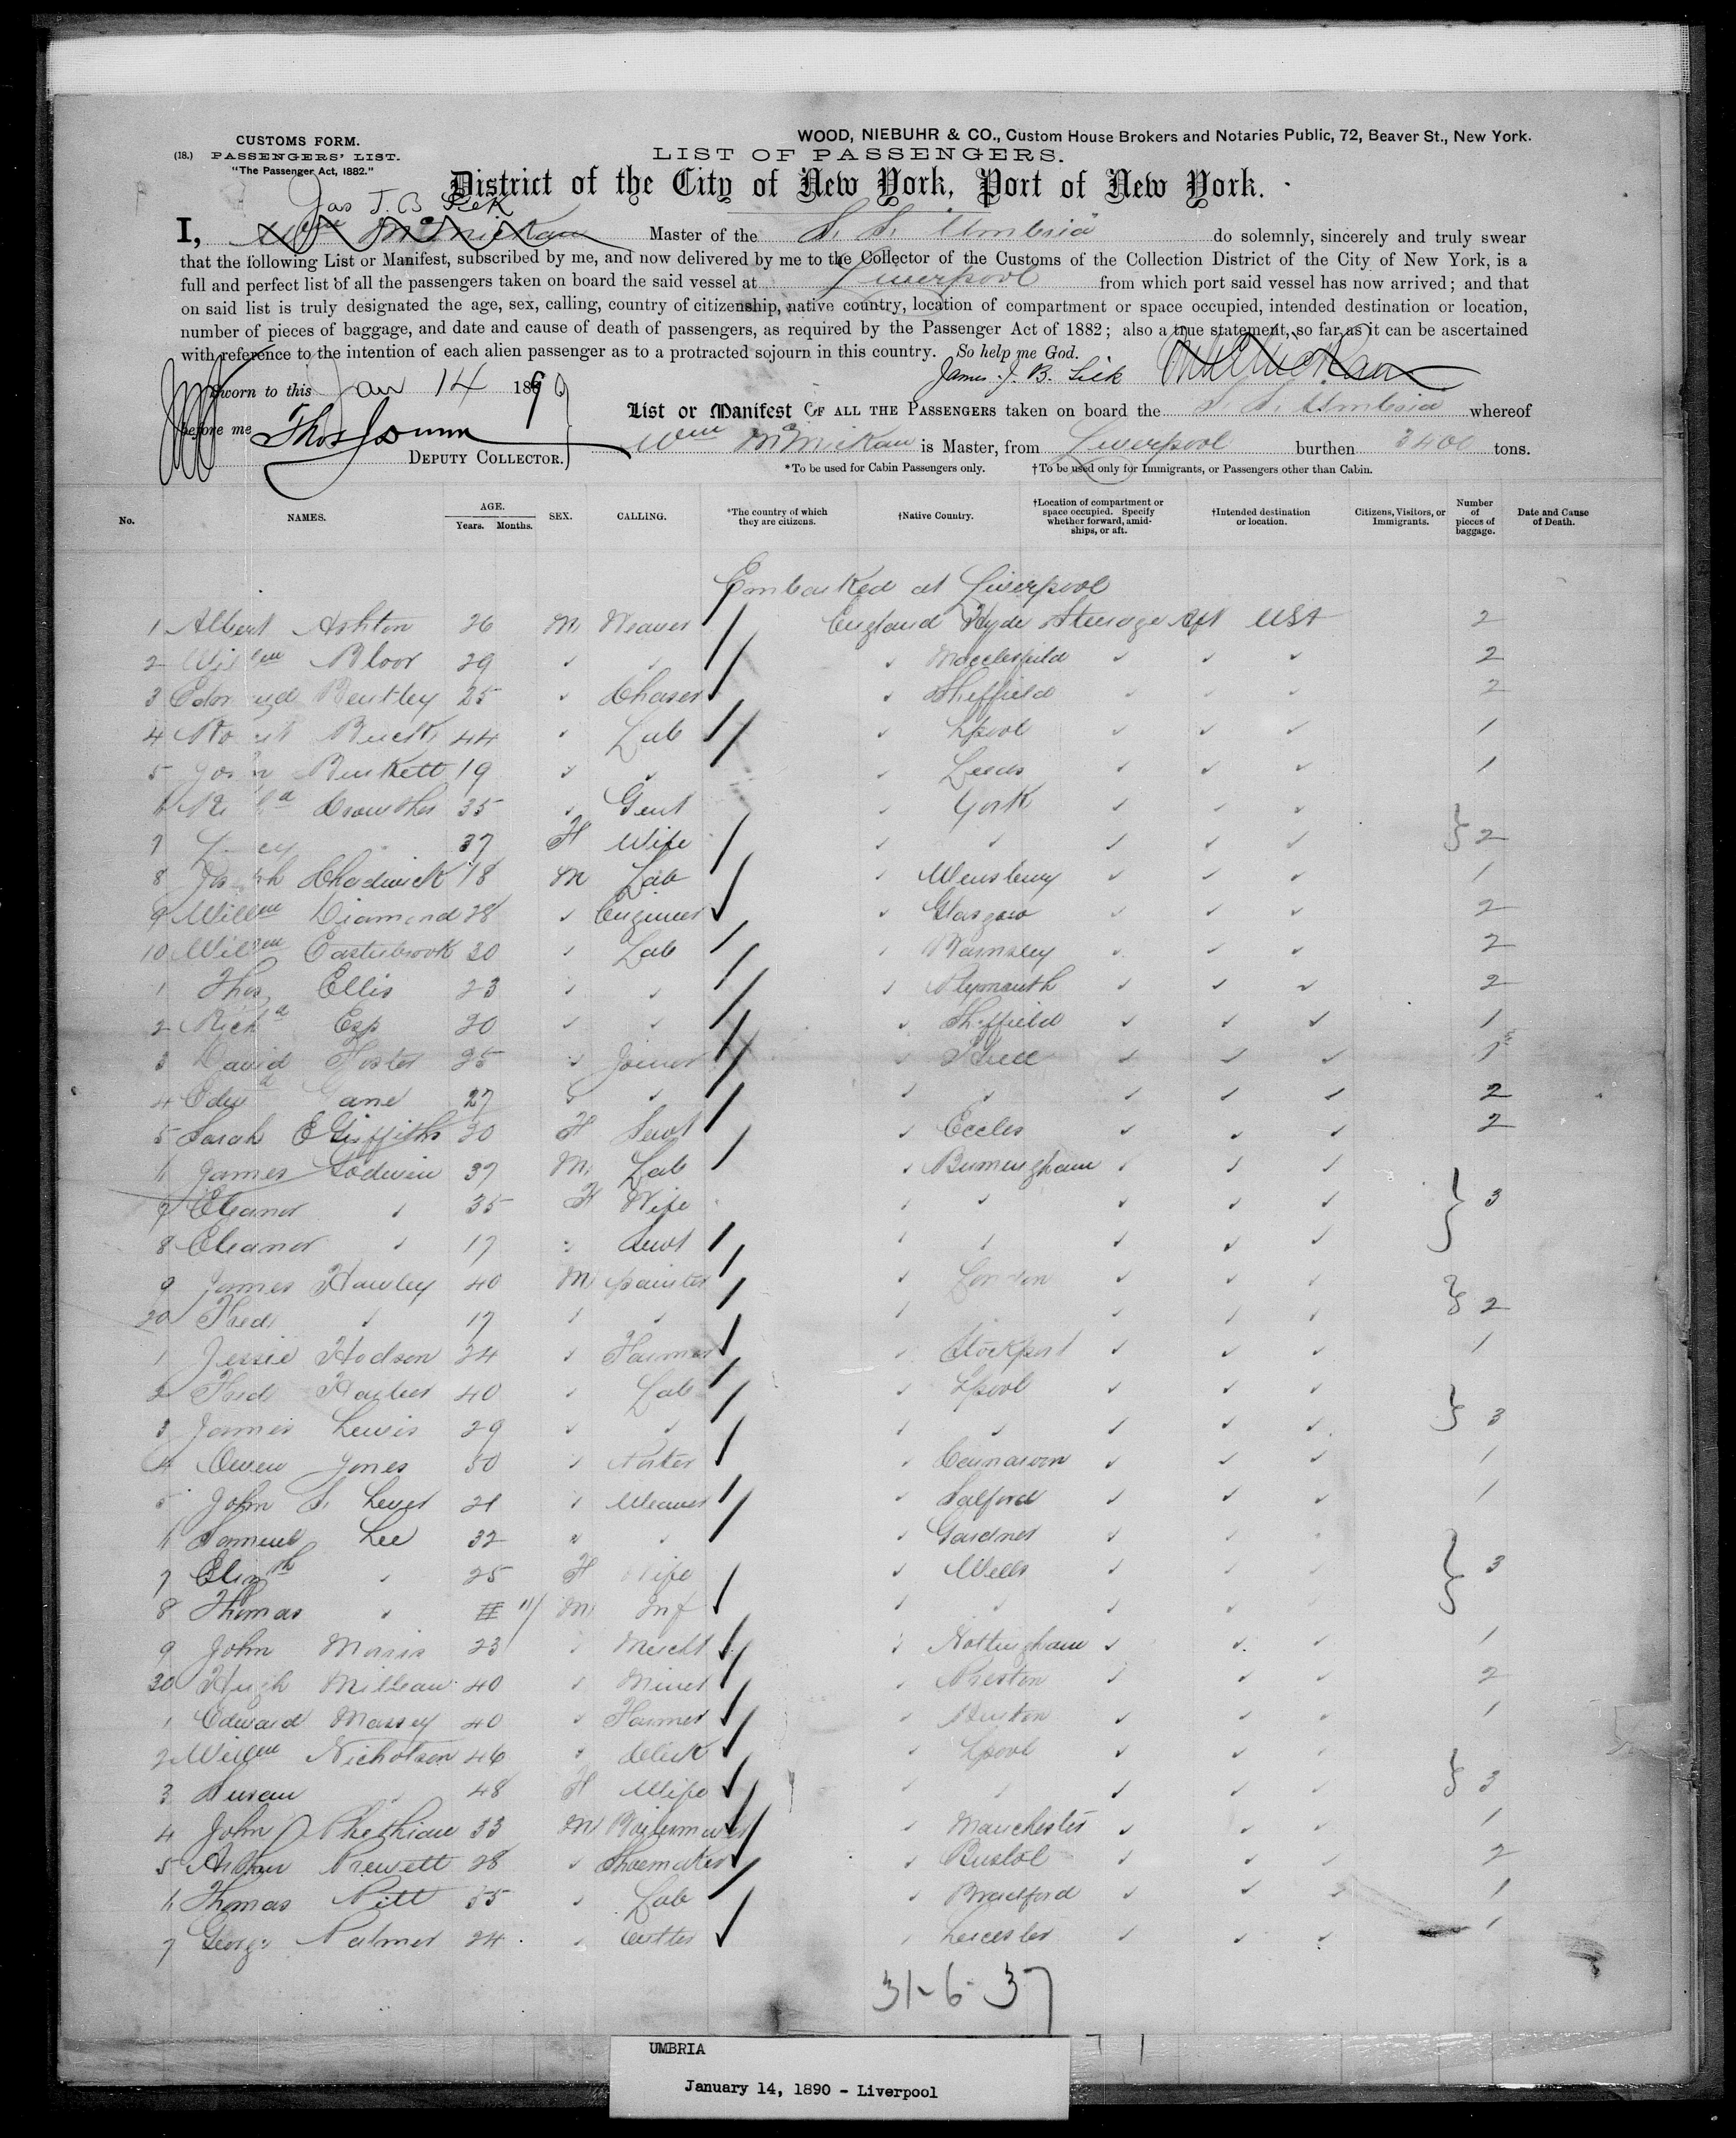 WOOD, NIEBUHR & CO., Custom House Brokers and Notaries Public, 72, Beaver St., New York.
CUSTOMS FORM.
(18.) PASSENGERS' LIST.
"The Passenger Act, 1882."
LIST OF PASSENGERS.
District of the City of New York, Port of New York.
Jas T. B.
I, Wm McMickan Master of the S. S. Umbria do solemnly, sincerely and truly swear
that the following List or Manifest, subscribed by me, and now delivered by me to the Collector of the Customs of the Collection District of the City of New York, is a
full and perfect list of all the passengers taken on board the said vessel at Liverpool from which port said vessel has now arrived; and that
on said list is truly designated the age, sex, calling, country of citizenship, native country, location of compartment or space occupied, intended destination or location,
number of pieces of baggage, and date and cause of death of passengers, as required by the Passenger Act of 1882; also a true statement, so far as it can be ascertained
with reference to the intention of each alien passenger as to a protracted sojourn in this country. So help me God.
James J. B. McMickan
Sworn to this Jan 14 1890
List or Manifest OF ALL THE PASSENGERS taken on board the S. S. Umbria whereof
before me Thos
Wm McMickan is Master, from Liverpool burthen 3400 tons.
DEPUTY COLLECTOR.
*To be used for Cabin Passengers only. †To be used only for Immigrants, or Passengers other than Cabin.
No. NAMES. AGE. Years. Months. SEX. CALLING. *The country of which they are citizens. †Native Country. †Location of compartment or space occupied. Specify whether forward, amidships, or aft. †Intended destination or location. Citizens, Visitors, or Immigrants. Number of pieces of baggage. Date and Cause of Death.
Embarked at Liverpool
1 Albert Ashton 26 M Weaver England Hyde Steerage Aft USA 2
2 Willm Bloor 29 Macclesfield 2
3 Edmund Bentley 25 Chaser Sheffield 2
4 44 Lab Lpool 1
5 19 Leeds 1
6 35 Gent York
7 37 F Wife 2
8 Joseph Chadwick 18 M Lab 1
9 Willm Diamond 28 Engineer Glasgow 2
10 Willm Easterbrook 30 Lab Barnsley 2
1 Thos Ellis 23 Plymouth 2
2 Richd 20 Sheffield 1
3 David Foster 25 Joiner 1
4 27 2
5 Sarah E Griffiths 30 F Servt Eccles 2
6 James Godwin 37 M Lab Birmingham
7 Eleanor 35 F Wife 3
8 Eleanor 17 Servt
9 James Hawley 40 M painter London
20 Fred 17 2
1 Jessie Hodson 24 Farmer Stockport 1
2 Fred 40 Lab Lpool
3 James Lewis 29 3
4 Owen Jones 50 Porter Carnarvon 1
5 John S. Lever 21 Weaver Salford 1
6 Samuel Lee 32
7 Elizth 25 F Wife Wells 3
8 Thomas 11/ M Inf
9 John Morris 23 Mercht Nottingham 1
30 Hugh 40 Miner Preston 2
1 Edward Massey 40 Farmer 1
2 Willm Nicholson 46 Clerk Lpool
3 Susan 48 F Wife 3
4 John 33 M Boilermaker Manchester 1
5 Arthur Prewett 28 Shoemaker Bristol 2
6 Thomas Pitt 35 Lab Bradford 1
7 George Palmer 24 Cutter Leicester 1
31-6-37
UMBRIA
January 14, 1890 - Liverpool